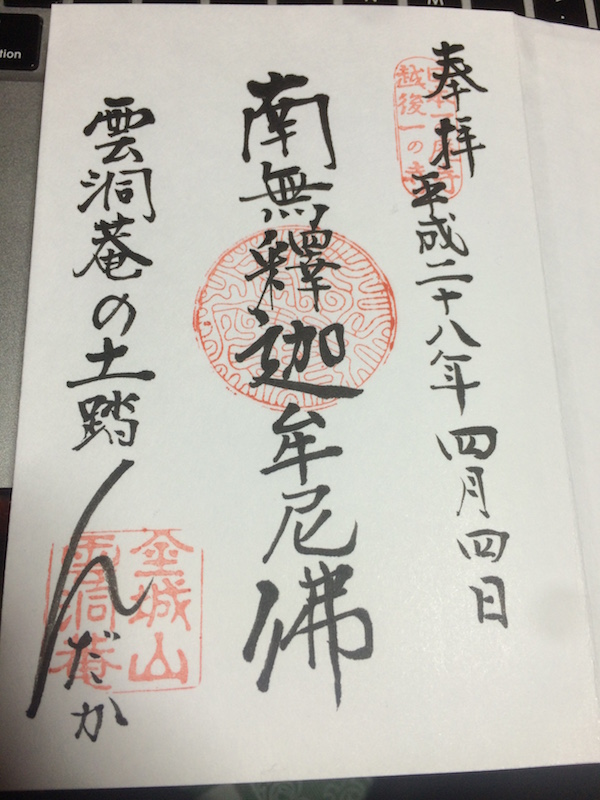 奉拝
平成二十八年四月四日
越後一の寺
南無釋迦牟尼佛
雲洞菴の土踏んだか
金城山
雲洞菴